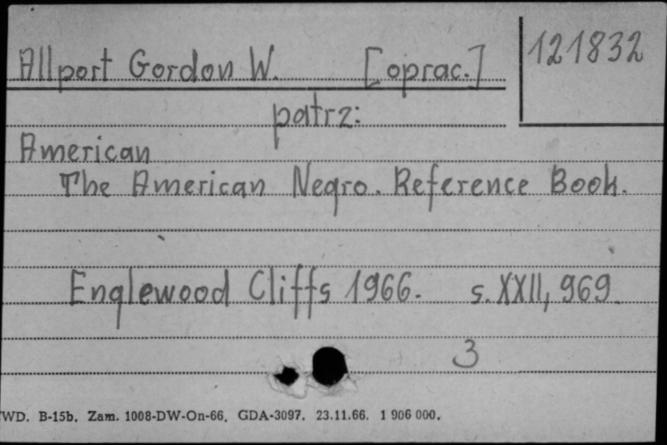 Allport Gordon W. [oprac.]
121832
patrz:
American
The American Negro. Reference Book.
Englewood Cliffs 1966. s. XXII, 969.
3
WD. B-15b. Zam. 1008-DW-On-66. GDA-3097. 23.11.66. 1 906 000.